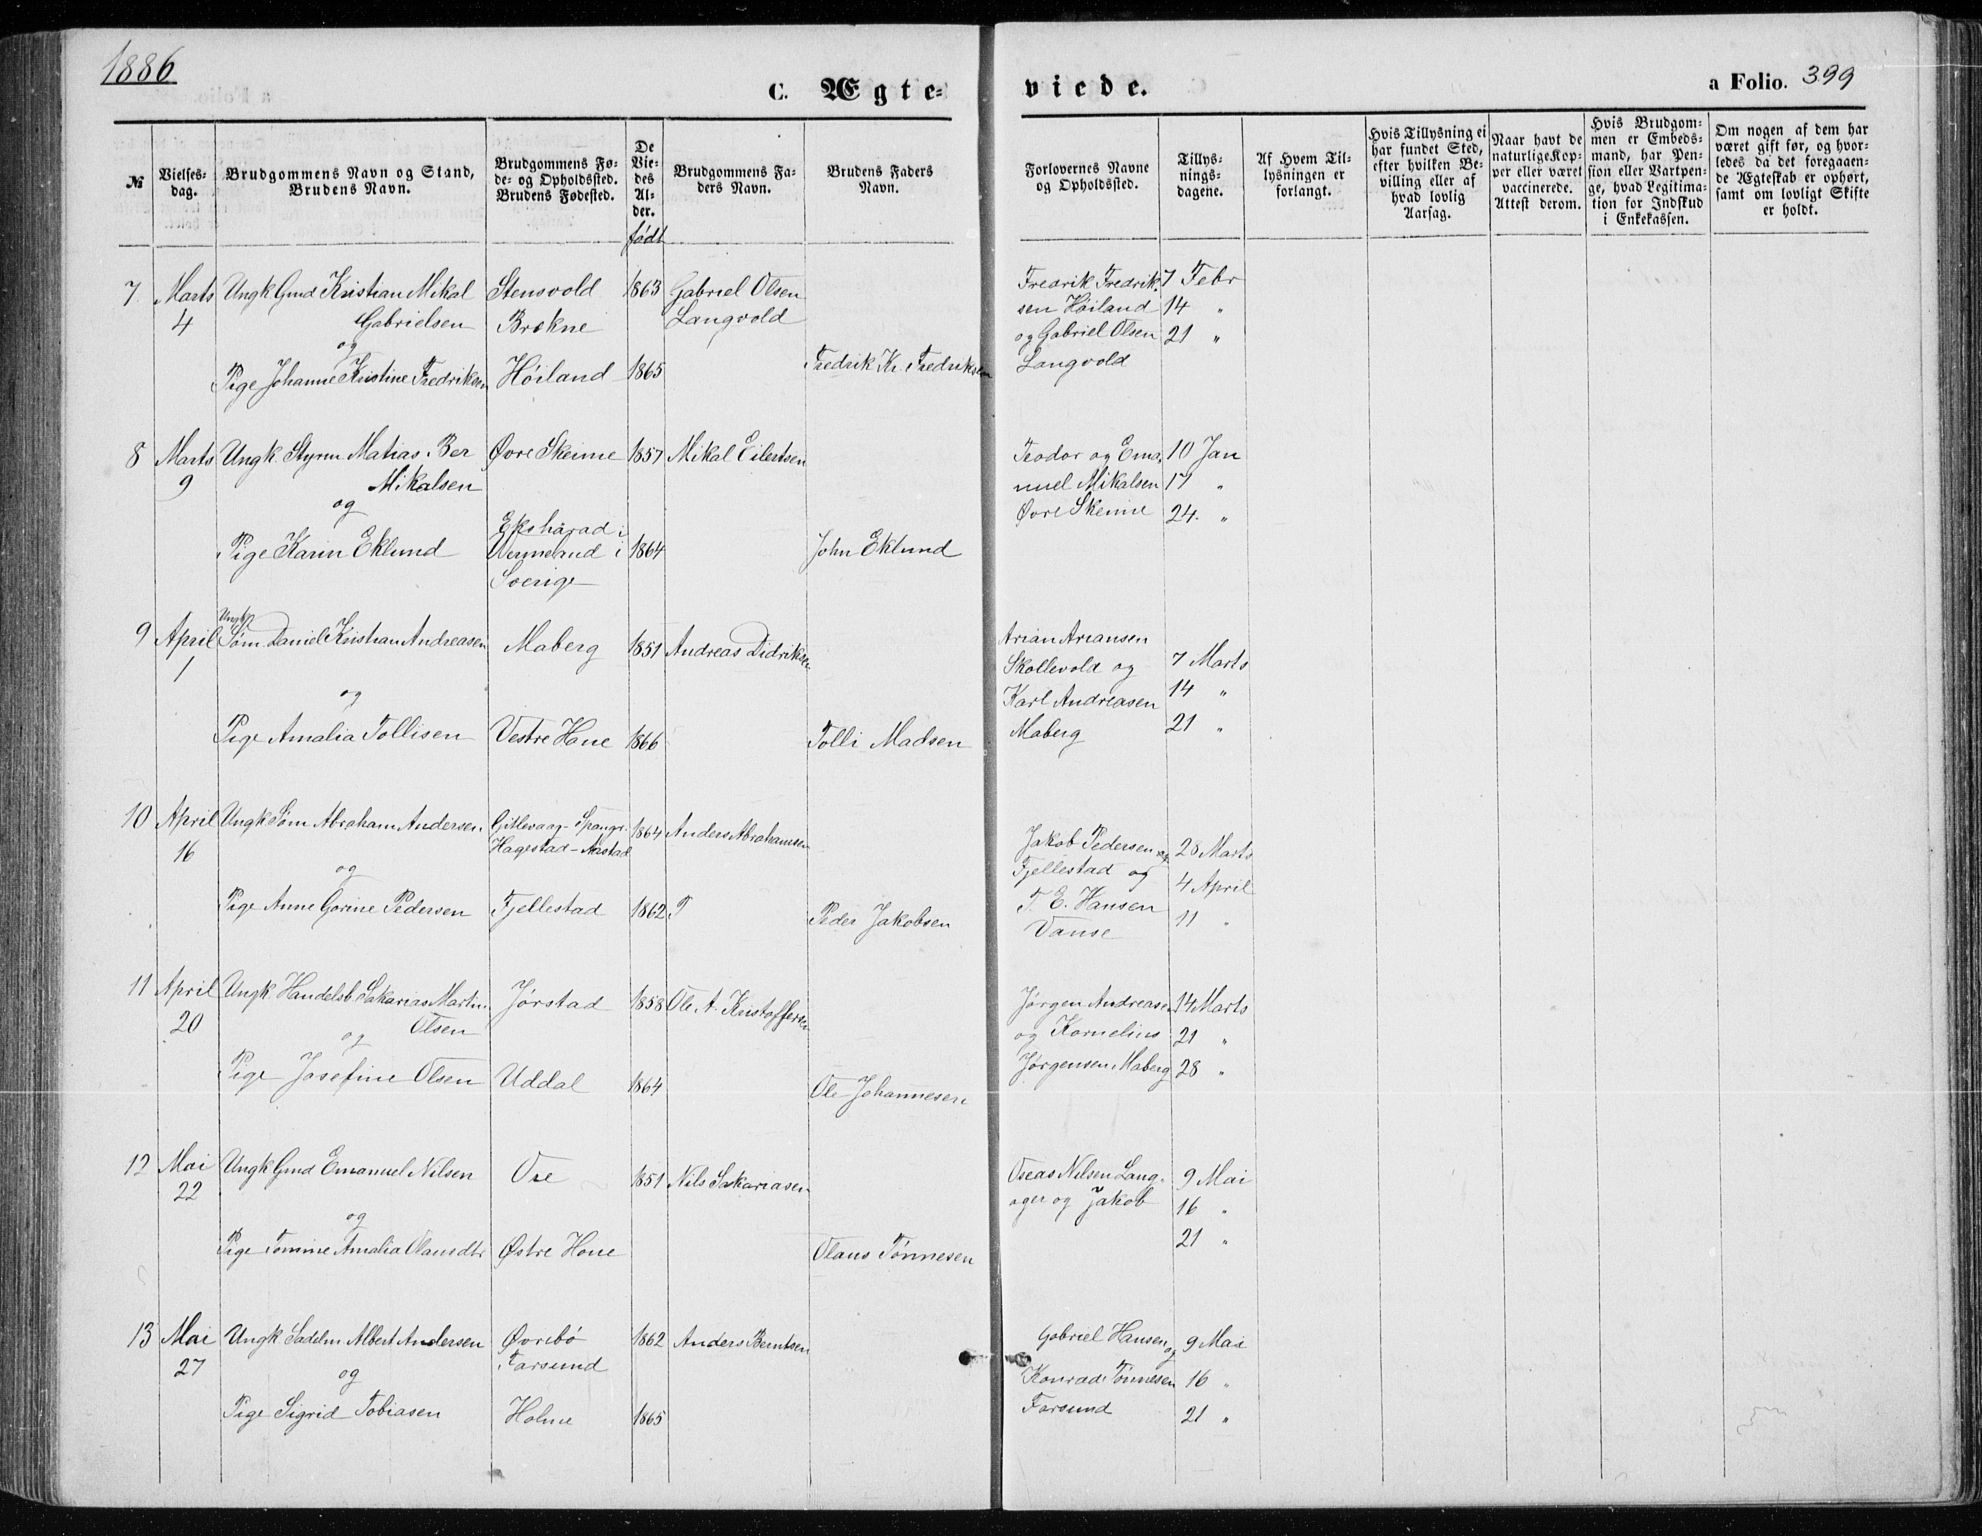 1886
C. Ægte-
viede.
a Folio. 399
№
Vielses-
dag.
Brudgommens Navn og Stand,
Brudens Navn.
Brudgommens Fø-
de- og Opholdssted.
Brudens Fødested.
De
Vie-
des
Al-
der.
født
Brudgommens Fa-
ders Navn.
Brudens Faders
Navn.
Forlovernes Navne
og Opholdssted.
Tillys-
nings-
dagene.
Af Hvem Til-
lysningen er
forlangt.
Hvis Tillysning ei
har fundet Sted,
efter hvilken Be-
villing eller af
hvad lovlig
Aarsag.
Naar havt de
naturlige Kop-
per eller været
vaccinerede.
Attest derom.
Hvis Brudgom-
men er Embeds-
mand, har Pen-
sion eller Vartpen-
ge, hvad Legitima-
tion for Indskud
i Enkekassen.
Om nogen af dem har
været gift før, og hvor-
ledes da det foregaaen-
de Ægteskab er ophørt,
samt om lovligt Skifte
er holdt.
7 Marts Ungk Gmd Kristian Mikal Stensvold 1863 Gabriel Olsen Fredrik Fredrik- 7 Febr
4 Gabrielsen Brekne Langvold sen Høiland 14 "
og og Gabriel Olsen 21 "
Pige Johanne Kristine Fredriksen Høiland 1865 Fredrik Kr. Fredriksen Langvold
8 Marts Ungk. Styrm Matias Ber Øvre Skeime 1857 Mikal Eilertsen Teodor og Ema- 10 Jan
9 Mikalsen nuel Mikalsen 17 "
og Øvre Skeime 24. "
Ekshärad i
Pige Karin Eklund Vermland i 1864 John Eklund
Sverige
Ungk
9 April Søm. Daniel Kristian Andreasen Maberg 1851 Andreas Didriksen Arian Ariansen
1 Skollevold og 7 Marts
og Karl Andreasen 14 "
Pige Amalia Tollisen Vestre Hane 1866 Tolli Madsen Maberg 21 "
10 April Ungk Søm Abraham Andersen Gitlevaag - Spangr. 1864 Anders Abrahamsen Jakob Pedersen og 28 Marts
16 Hagestad - Aastad Fjellestad og 4 April
og T. E. Hansen 11 "
Pige Anne Gorine Pedersen Fjellestad 1862 T Peder Jakobsen Vanse
11 April Ungk. Handelsb Sakarias Martin Jørstad 1858 Ole A. Kristoffersen Jørgen Andreasen 14 Marts
20 og Olsen og Kornelius 21 "
Pige Josefine Olsen Uddal 1864 Ole Johannesen Jørgensen Maberg 28 "
12 Mai Ungk Gmd Emanuel Nilsen Ore 1851 Nils Sakariasen Oseas Nilsen Lang- 9 Mai
22 ager og Jakob 16 "
og 21 "
Pige Tomine Amalia Olausdtr Østre Hone Olaus Tønnesen
13 Mai Ungk Sadelm Albert Andersen Øvrebø 1862 Anders Berntsen Gabriel Hansen og 9 Mai
27 og Farsund Konrad Tønnesen 16 "
Pige Sigrid Tobiasen Holme 1865 Farsund 21 "